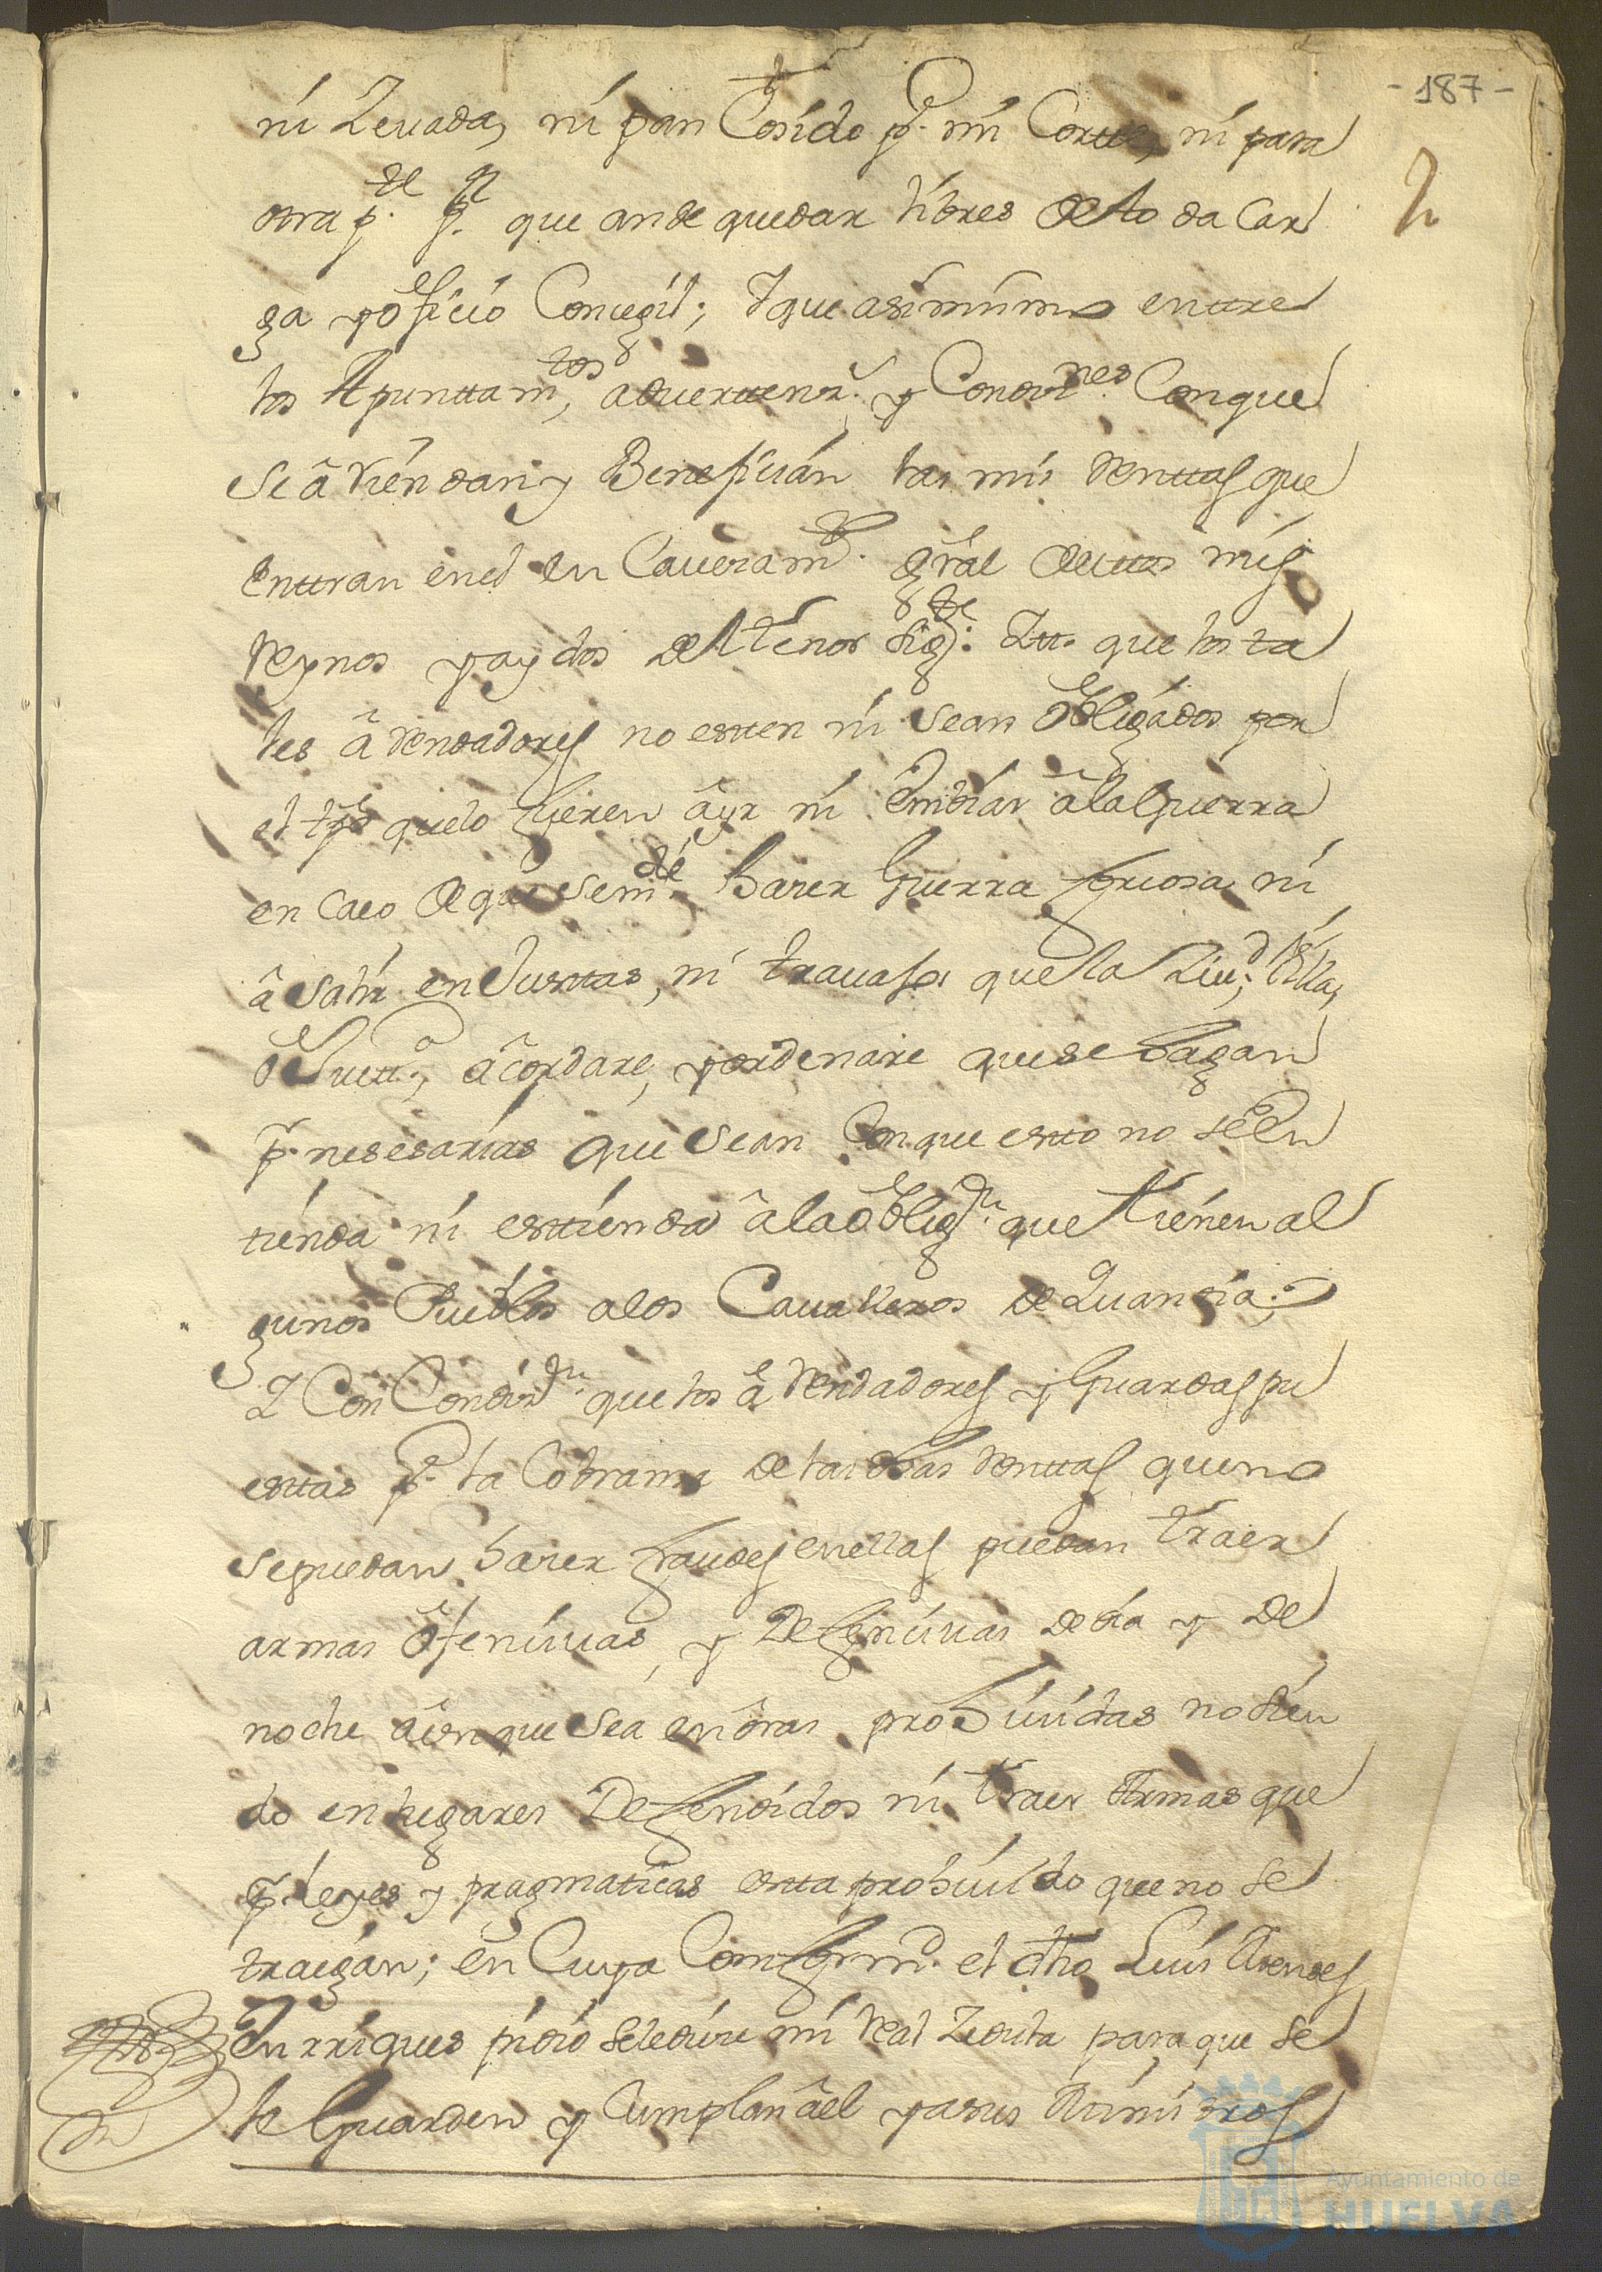 - 187 -
ni Zeuada, ni pan Cosido p.ª mi Cortte, ni para
otra p.te p.r que an de quedar libres de to da Car
ga y ofiçio Conçegil; Y que asimismo entre
los Apunttam.tos, aduerttenz.s y Condiz.nes Con que
se ârriendan y Benefiçian las mis Renttas que
enttran en el en Caueçam.to gral destos mis
Reynos y ay dos del tenor sig.te: Ytt. que los ta
les ârrendadores no estten ni sean obligados por
el tpo que lo fueren â yr ni embiar â la Guerra
en caso de que se m.de hacer Guerra forçosa ni
â salir en Junttas, ni trauajos que la Ziu.d, Villa,
o Lugar, âcordare, y ordenare que se hagan
p.r nesesarias que sean Con que estto no se en
tienda ni esttienda â la oblig.on que tienen al
gunos Pueblos a los Caualleros de Quantia;
Y Con Condiz.on que los ârrendadores y Guardas pu
esttas p.ª la Cobranza de las dhas Renttas que no
se puedan hacer fraudes en ellas puedan traer
armas ôfensiuas, y Defensiuas de dia y de
noche âunque sea en oras prohiuidas no sien
do en lugares Defendidos ni traer Armas que
p.r leyes y pragmaticas estta prohiuido que no se
traigan; en Cuya Comform.d el dho Luis Mendes
Enrriques pidio se le diese mi Real Zedula para que se
le Guarden y Cumplan âel y a sus Ministros
Ayuntamiento de
HUELVA